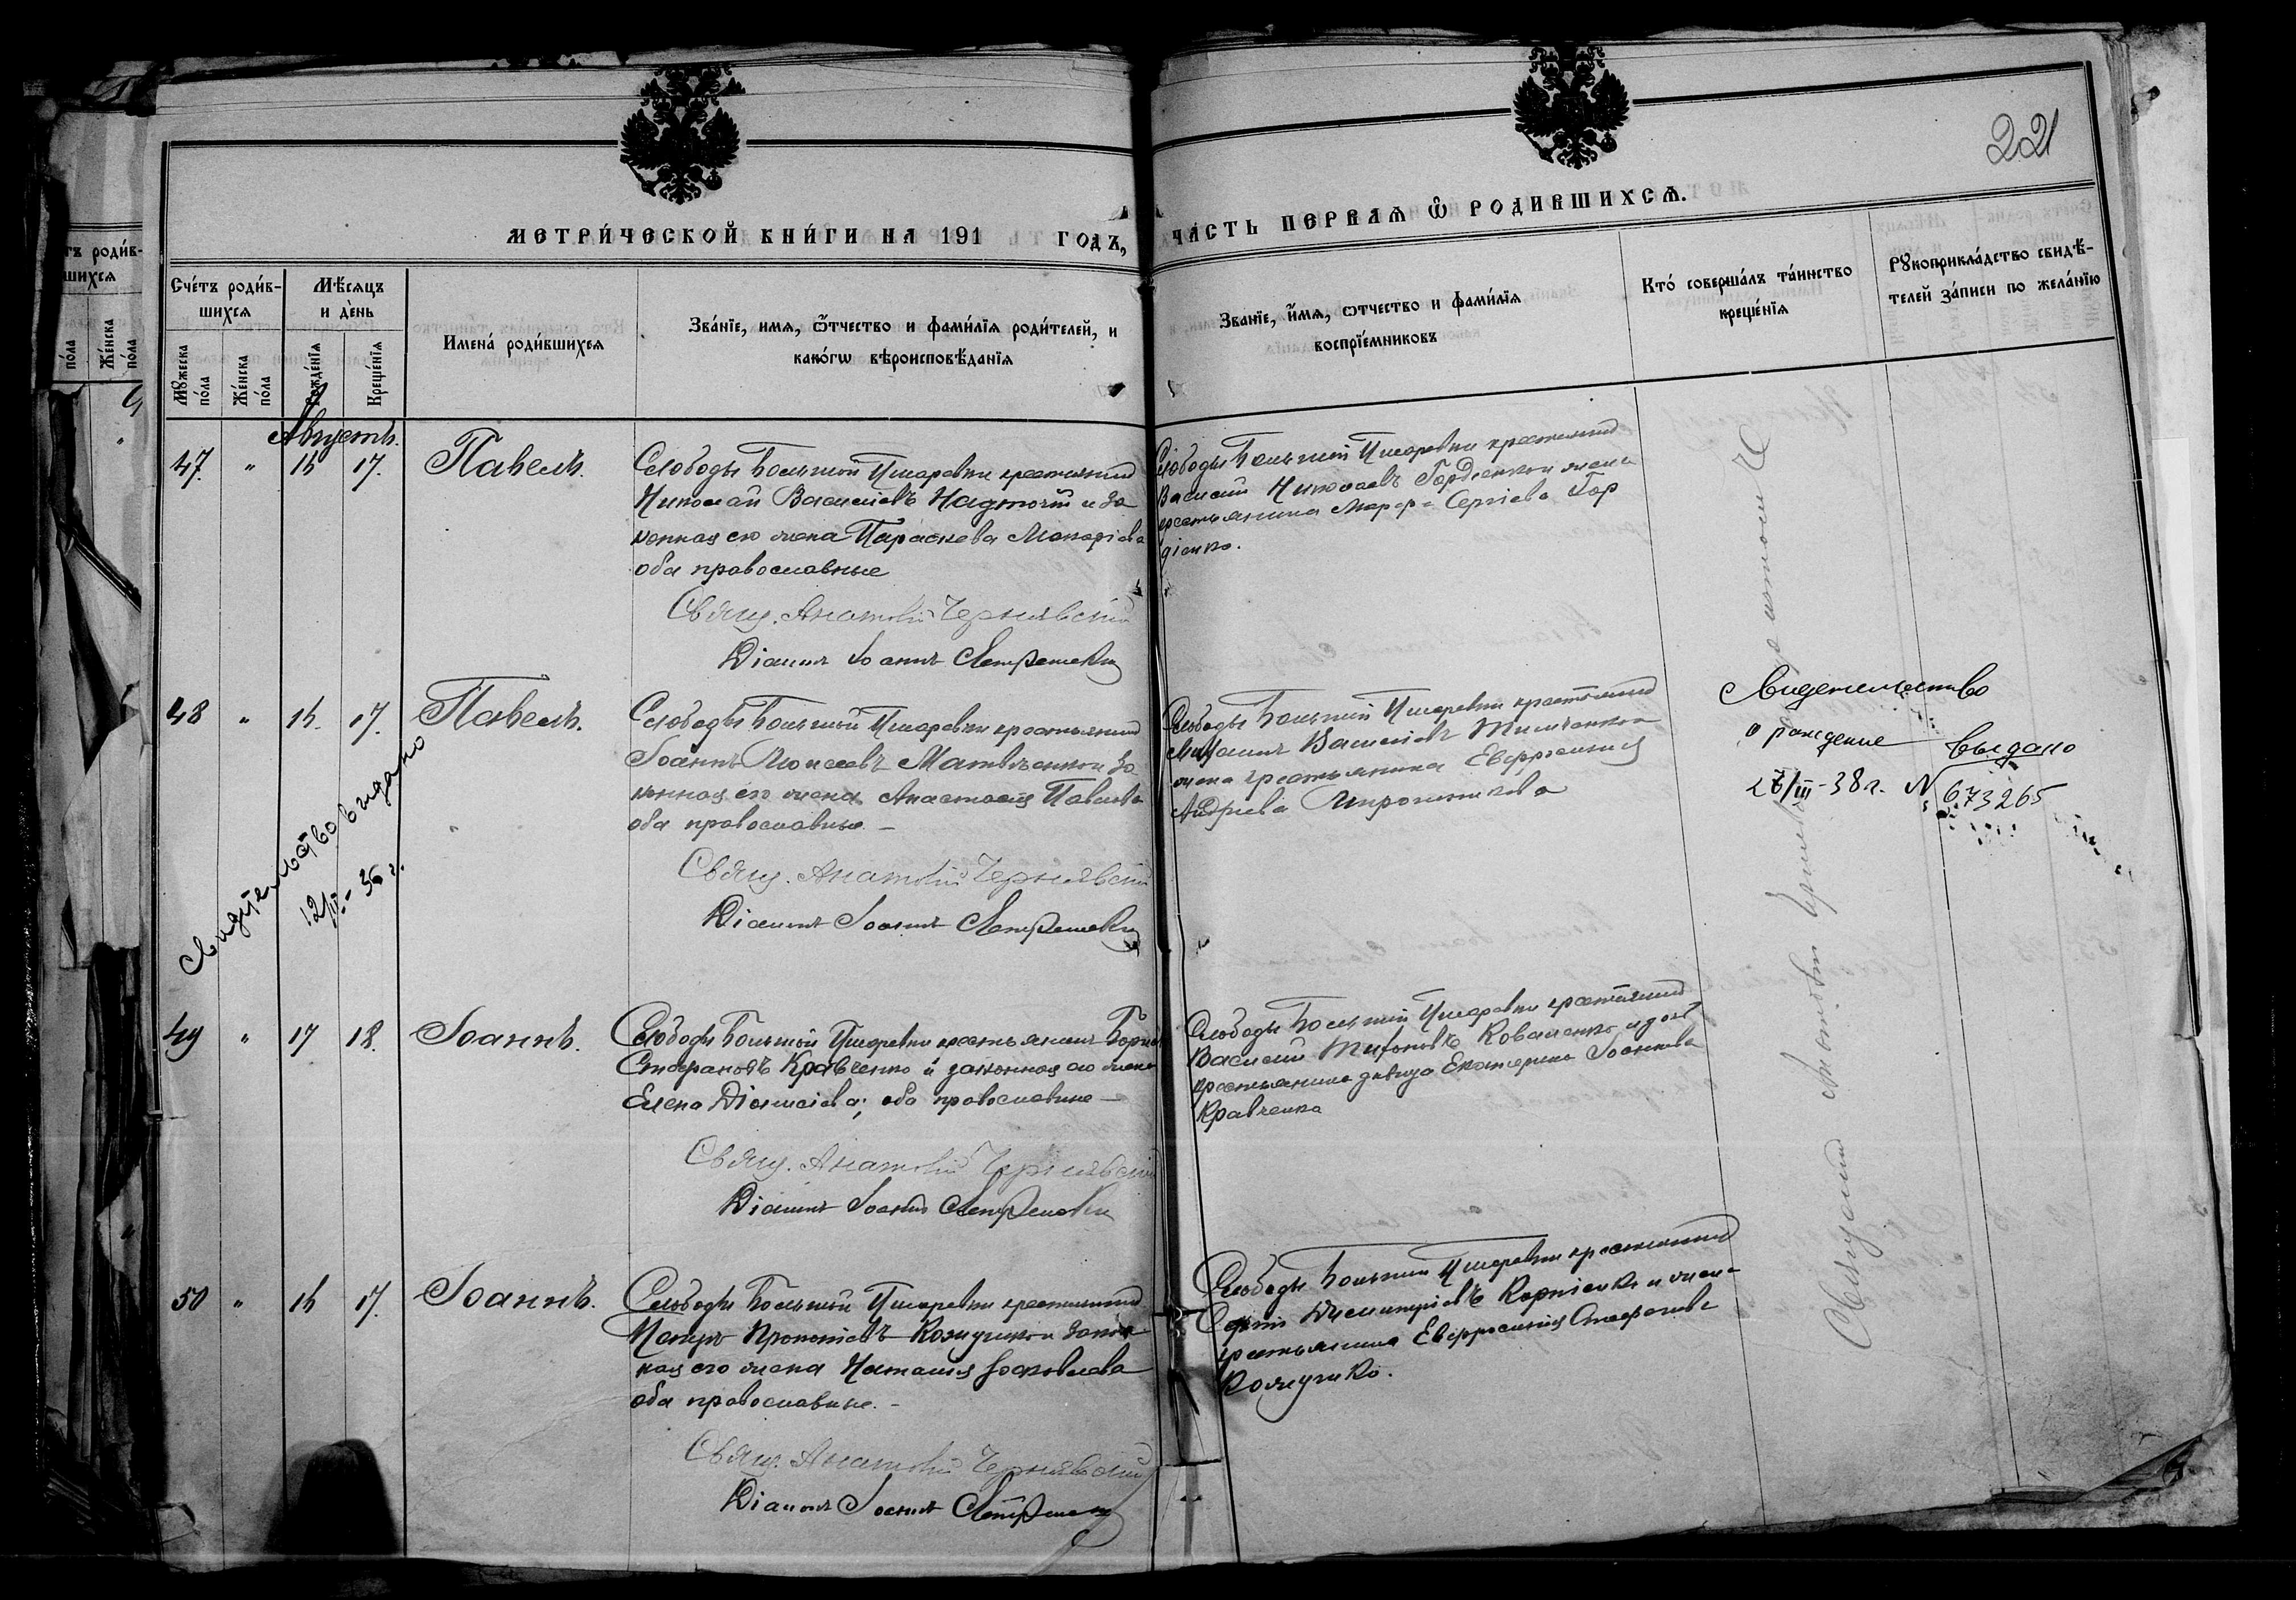 221
МЕТРИ́ЧЕСКОЙ КНИ́ГИ НА 191 ГОДЪ,
ЧА́СТЬ ПЕРВАѦ Ѿ РОДИВШИХСѦ.
Сче́тъ роди́в-
шихсѧ
Мѣ́сѧцъ
и де́нь
Имена́ роди́вшихсѧ
Зва́нїе, имѧ, ѻ҆́тчество и фами́лїѧ роди́телей, и
како́гѡ вѣроисповѣ́данїѧ
Мꙋжеска по́ла
Же́нска по́ла
Рожде́нїѧ
Креще́нїѧ
Званїе, и҆́мѧ, ѻтчество и фами́лїѧ
воспрїе́мниковъ
Кто́ соверша́лъ та́инство
креще́нїѧ
Рꙋкоприкла́дство свидѣ́-
телей за́писи по жела́нїю
Августъ.
47. " 15 17. Павелъ.
Слободы Большой Писаревки крестьянинъ
Николай Васильевъ Надточій и за
конная его жена Параскева Макаріева
оба православные
Свящ. Анатолій Чернявскій
Діаконъ Іоаннъ
Слободы Большой Писаревки крестьянинъ
Василій Николаевъ Гордіенко и жена
крестьянина Марфа Сергіева Гор
діенко.
48 " 15. 17. Павелъ.
Слободы Большой Писаревки крестьянинъ
Іоаннъ Моисеевъ Матвіенко и за
конная его жена Анастасія Павлова
оба православные. –
Свящ. Анатолій Чернявскій
Діаконъ Іоаннъ
Свидетельство выдано
12/ - 36 г.
Слободы Большой Писаревки крестьянинъ
Михаилъ Васильевъ и
жена крестьянина Евфросинія
Андреева
Свидетельство
о рождение выдано
27/III-38 г. N 673265
49 " 17 18. Іоаннъ.
Слободы Большой Писаревки крестьянинъ Борисъ
Стефановъ Кравченко и законная его жена
Елена Діонисіева; оба православные –
Свящ. Анатолій Чернявскій
Діаконъ Іоаннъ
Слободы Большой Писаревки крестьянинъ
Василій Тихоновъ Коваленко и дочь
крестьянина девица Екатерина Іоаннова
Кравченко
50 " 15 17. Іоаннъ.
Слободы Большой Писаревки крестьянинъ
Прокопіевъ Кожушко и закон
ная его жена Наталія Іаковлева
оба православные. –
Свящ. Анатолій Чернявскій
Діаконъ Іоаннъ
Слободы Большой Писаревки крестьянинъ
Сергій Димитріевъ Корніенко и жена
крестьянина Евфросинія Стефанова
Кожушко.
Священникъ Анатолій Чернявскій